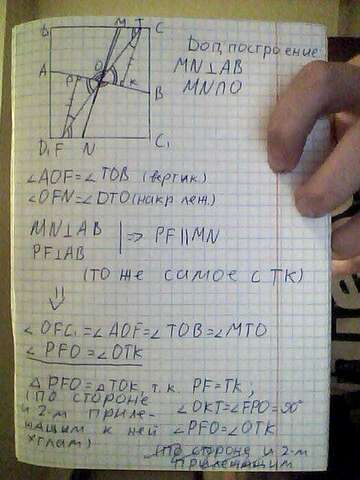 D M T C
Доп. построение
MN⊥AB
MN∩O
A O
P K B
D₁ F N C₁
∠AOF=∠TOB (вертик)
∠OFN=∠DTO (накр леж.)
MN⊥AB
PF⊥AB | => PF||MN
(ТО ЖЕ САМОЕ С ТК)
⇓
∠OFC₁=∠AOF=∠TOB=∠MTO
∠PFO=∠OTK
△PFO=△TOK, т.к. PF=TK,
(ПО СТОРОНЕ ∠OKT=∠FPO=90°
И 2-М ПРИЛЕ- ∠PFO=∠OTK
ЖАЩИМ К НЕЙ
УГЛАМ) (ПО СТОРОНЕ И 2-М
ПРИЛЕЖАЩИМ